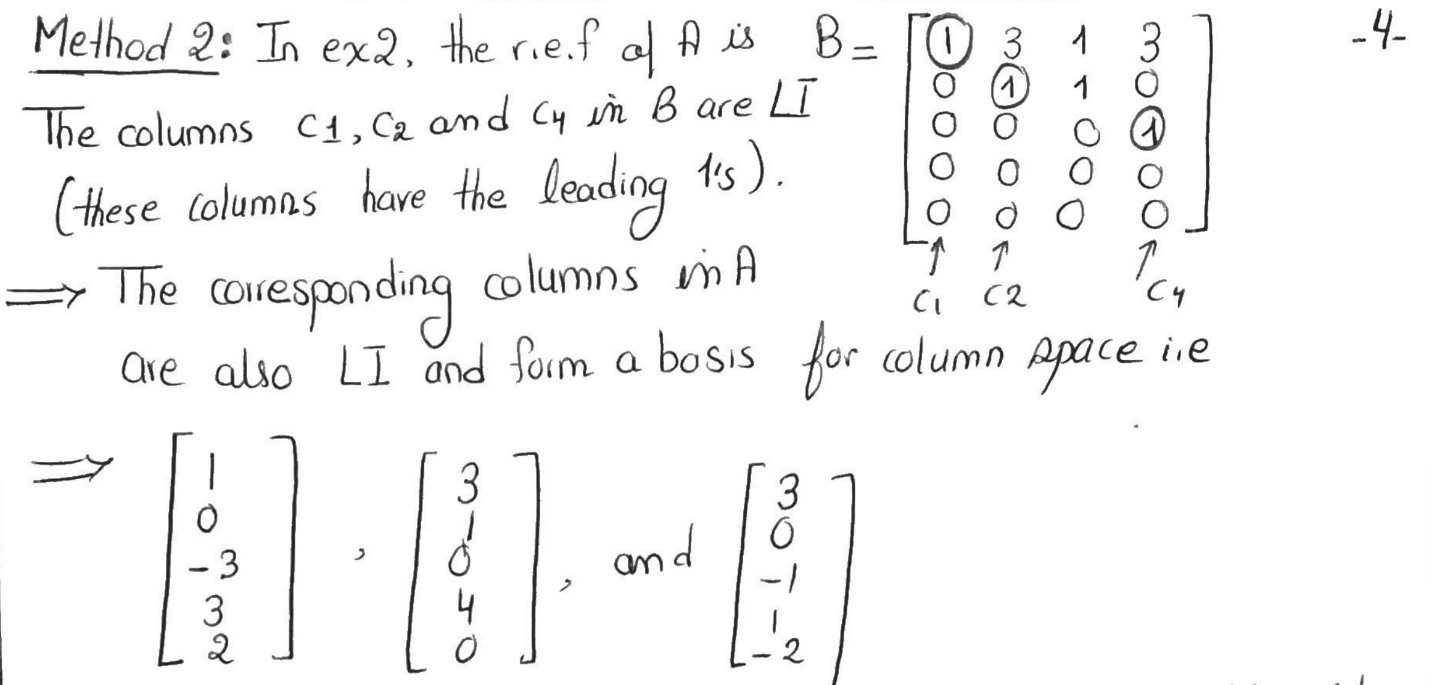 Method 2: In ex2, the r.e.f of A is B = [ 1 3 1 3 -4-
0 1 1 0
The columns C1, C2 and C4 in B are LI
0 0 0 1
(these columns have the leading 1's).
0 0 0 0
0 0 0 0 ]
↑ ↑ ↑
C1 C2 C4
⟹ The corresponding columns in A
are also LI and form a basis for column space i.e
⟹ [ 1 0 -3 3 2 ] , [ 3 1 0 4 0 ] , and [ 3 0 -1 1 -2 ]